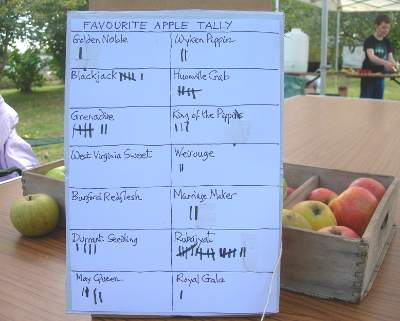 FAVOURITE APPLE TALLY
Golden Noble
Wyken Pippin
Blackjack
Huonville Crab
Grenadine
King of the Pippins
West Virginia Sweet
Weirouge
Burford Redflesh
Marriage Maker
Durrant Seedling
Rubaiyat
May Queen
Royal Gala